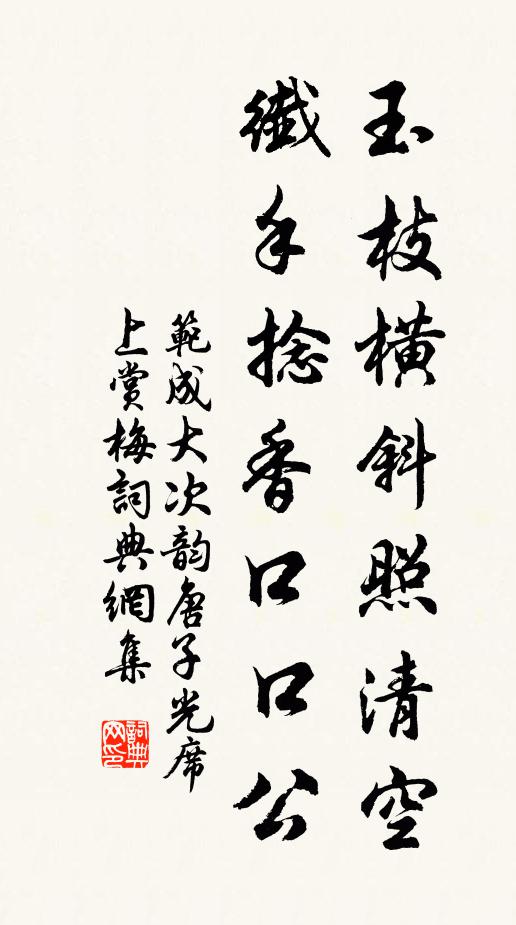 玉枝橫斜照清空
纖手捻香口口公
範成大次韵唐子光席
上賞梅詞典網集
詞典网印